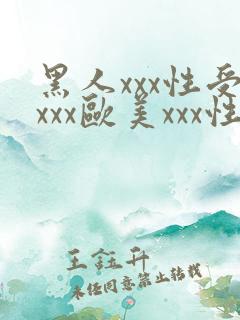 黑人xxx性受
xxx歐美xxx性
王鈺升
未經同意禁止转载